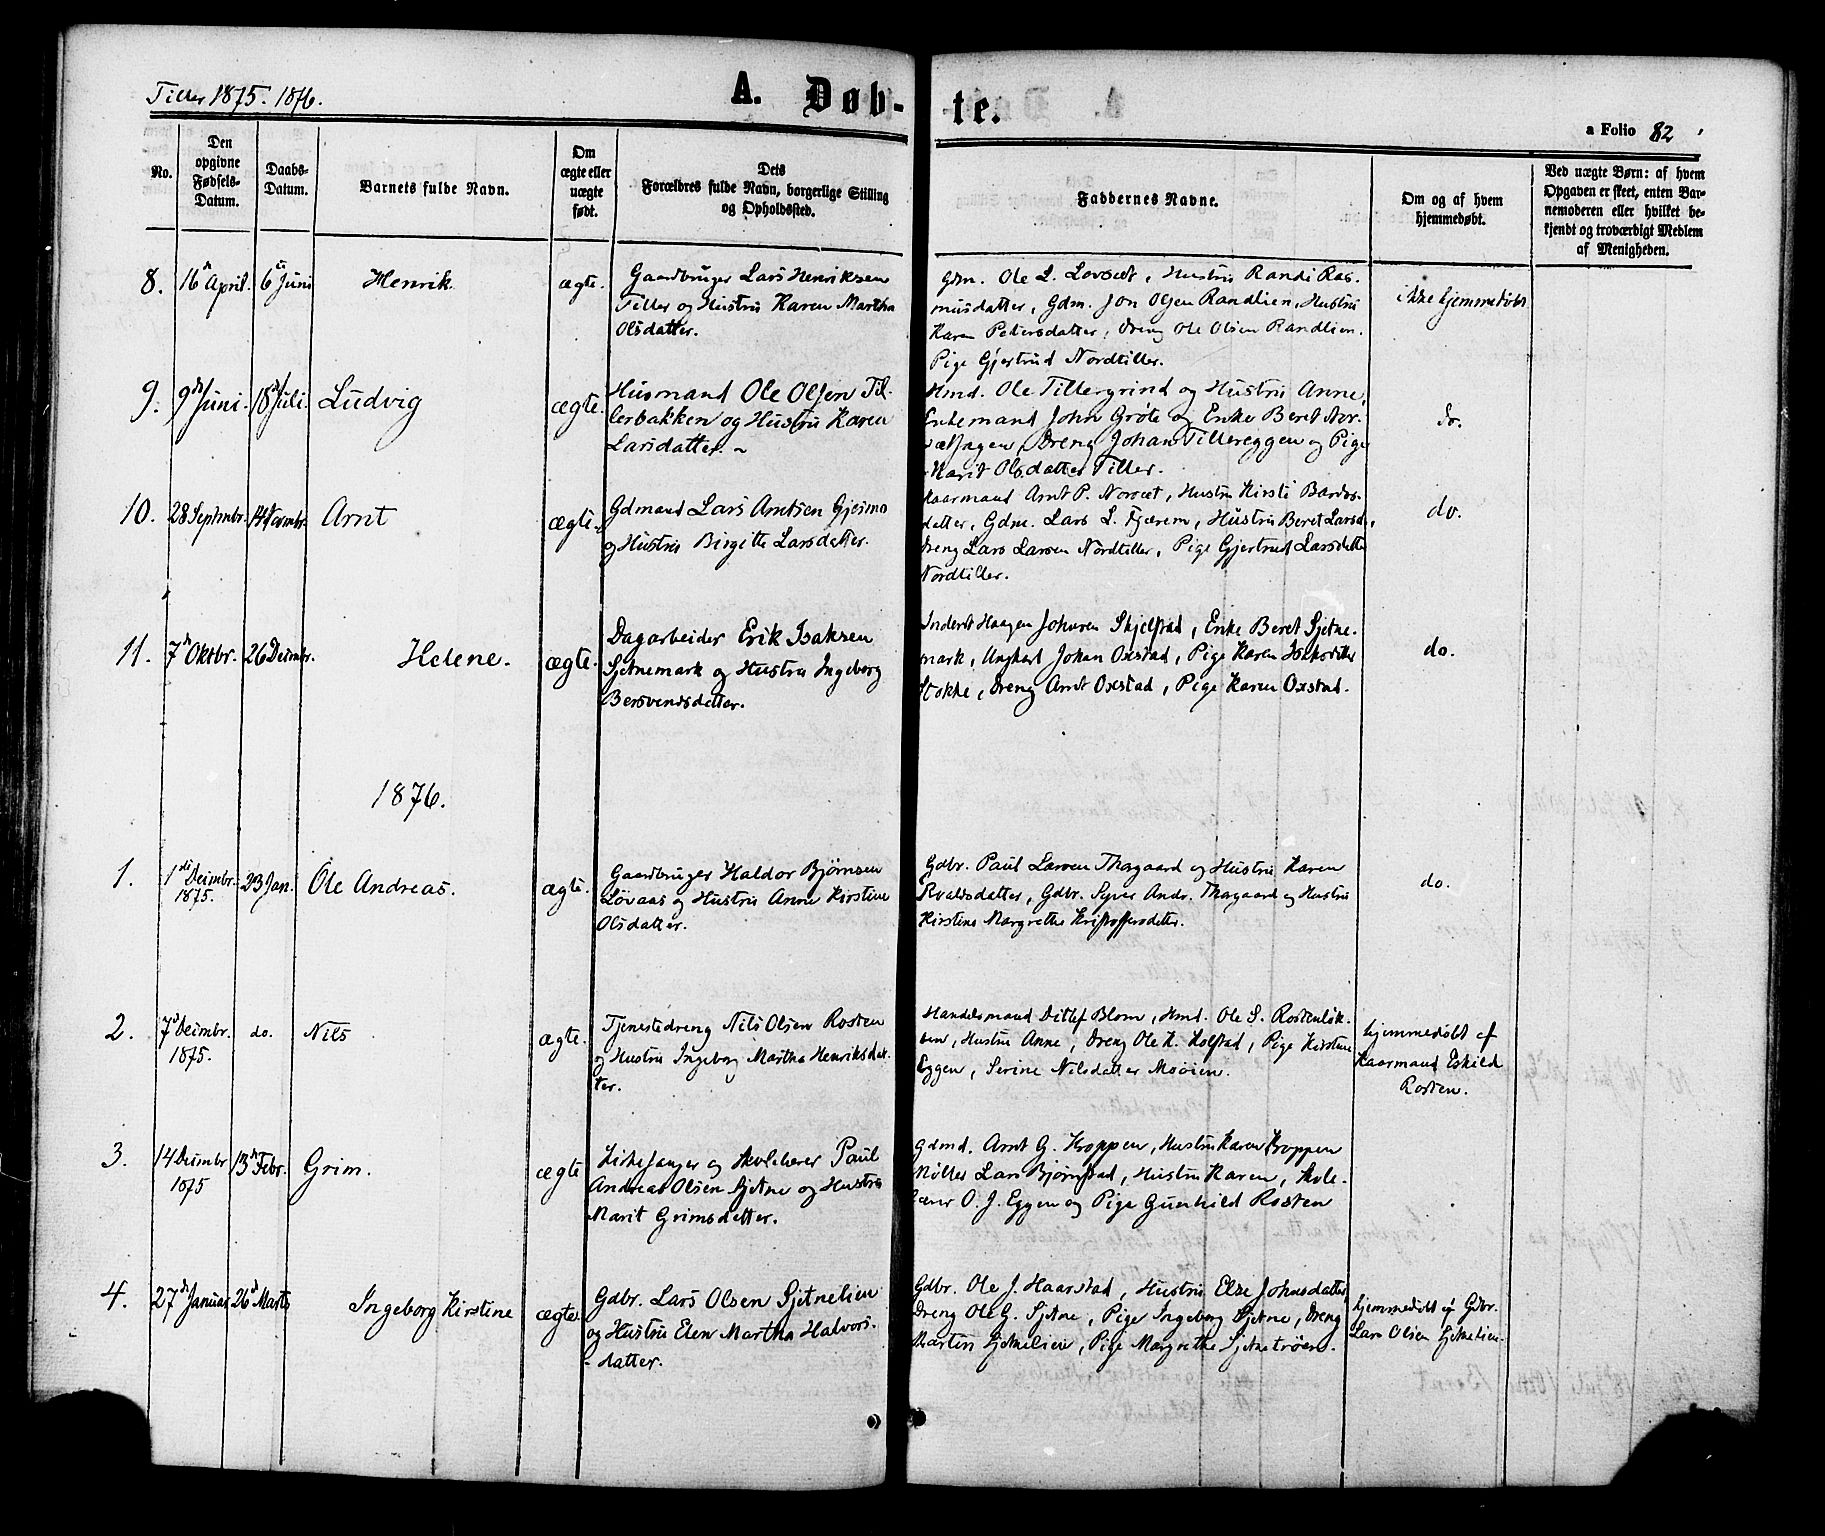 Tiller 1875. 1876.
A. Døb-
te.
a Folio 82
No.
Den
opgivne
Fødsels-
Datum.
Daabs-
Datum.
Barnets fulde Navn.
Om
ægte eller
uægte
født.
Dets
Forældres fulde Navn, borgerlige Stilling
og Opholdssted.
Faddernes Navne.
Om og af hvem
hjemmedøbt.
Ved uægte Børn: af hvem
Opgaven er skeet, enten Bar-
nemoderen eller hvilket be-
kjendt og troværdigt Medlem
af Menigheden.
8.
16 April.
6 Juni
Henrik
ægte.
Gaardbruger Lars Henriksen
Tiller og Hustru Karen Martha
Olsdatter.
Gdm. Ole L. Lovset, Hustru Randi Ras-
musdatter, Gdm. Jon Olsen Randlien, Hustru
Karen Petersdatter, Dreng Ole Olsen Randlien.
Pige Gjertrud Nordtiller.
ikke hjemmedøbt
9.
9 Juni.
18 Juli.
Ludvig
ægte.
Husmand Ole Olsen Til-
lerbakken og Hustru Karen
Larsdatter. ~
Hmd. Ole Tillergrind og Hustru Anne,
Enkemand John Grøte og Enke Beret Nor-
Dreng Johan Tillereggen og Pige
Marit Olsdatter Tiller.
do.
10.
28 Septmbr.
14 Novmbr.
Arnt
ægte.
Gdmand Lars Arntsen Gjesmo
og Hustru Birgitte Larsdatter.
Kaarmand Arnt P. Norset, Hustru Kirsti Bardos-
datter, Gdm. Lars L. Fjærem, Hustru Beret Larsd.,
Dreng Lars Larsen Nordtiller, Pige Gjertrud Larsdatter
Nordtiller.
do.
11.
7de Oktbr.
26 Decmbr.
Helene.
ægte.
Dagarbeider Erik Isaksen
Sjetnemark og Hustru Ingeborg
Bersvendsdatter.
Inderst Haagen Johnsen Skjelstad, Enke Beret Sjetne-
mark, Ungkarl Johan Oxstad, Pige Karen
Stokke, Dreng Arnt Oxstad, Pige Karen Oxstad.
do.
1876.
1.
1de Decmbr.
1875.
23 Jan.
Ole Andreas.
ægte.
Gaardbruger Haldor Bjørnsen
Løvaas og Hustru Anne Kirstine
Olsdatter.
Gdbr. Paul Larsen Thorgaard og Hustru Karen
Roaldsdatter, Gdbr. Syver Andr. Thorgaard og Hustru
Kirstine Margrethe Kristoffersdatter.
do.
2.
7de Decmbr.
1875.
do.
Nils
ægte.
Tjenestedreng Nils Olsen Rosten
og Hustru Ingeborg Martha Henriksdat-
ter.
Handelsmand Ditlef Blom, Hmd. Ole S. Rostenløk-
ken, Hustru Anne, Dreng Ole K. Kolstad, Pige Kirstine
Eggen, Serine Nilsdatter Moøien.
hjemmedøbt af
Kaarmand Eskild
Rosten.
3.
14 Decmbr
1875
13de Febr.
Grim.
ægte
Kirkesanger og Skolelærer Paul
Andreas Olsen Sjetne og Hustru
Marit Grimsdatter.
Gdmd. Arnt G. Kroppen, Hustru Karen Kroppen
Møller Lars Bjørnstad, Hustru Karen, Skole-
lærer O. J. Eggen og Pige Gunhild Rosten
4.
27de Januar
26de Marts
Ingeborg Kirstine
ægte.
Gdbr. Lars Olsen Sjetnelien
og Hustru Elen Martha Halvors-
datter.
Gdbr. Ole J. Haarstad, Hustru Else Johnsdatter,
Dreng Ole G. Sjetne, Pige Ingeborg Sjetne, Dreng
Martin Sjetnelien, Pige Margrethe Sjetnetrøen.
hjemmedøbt af Gdbr.
Lars Olsen Sjetnelien.